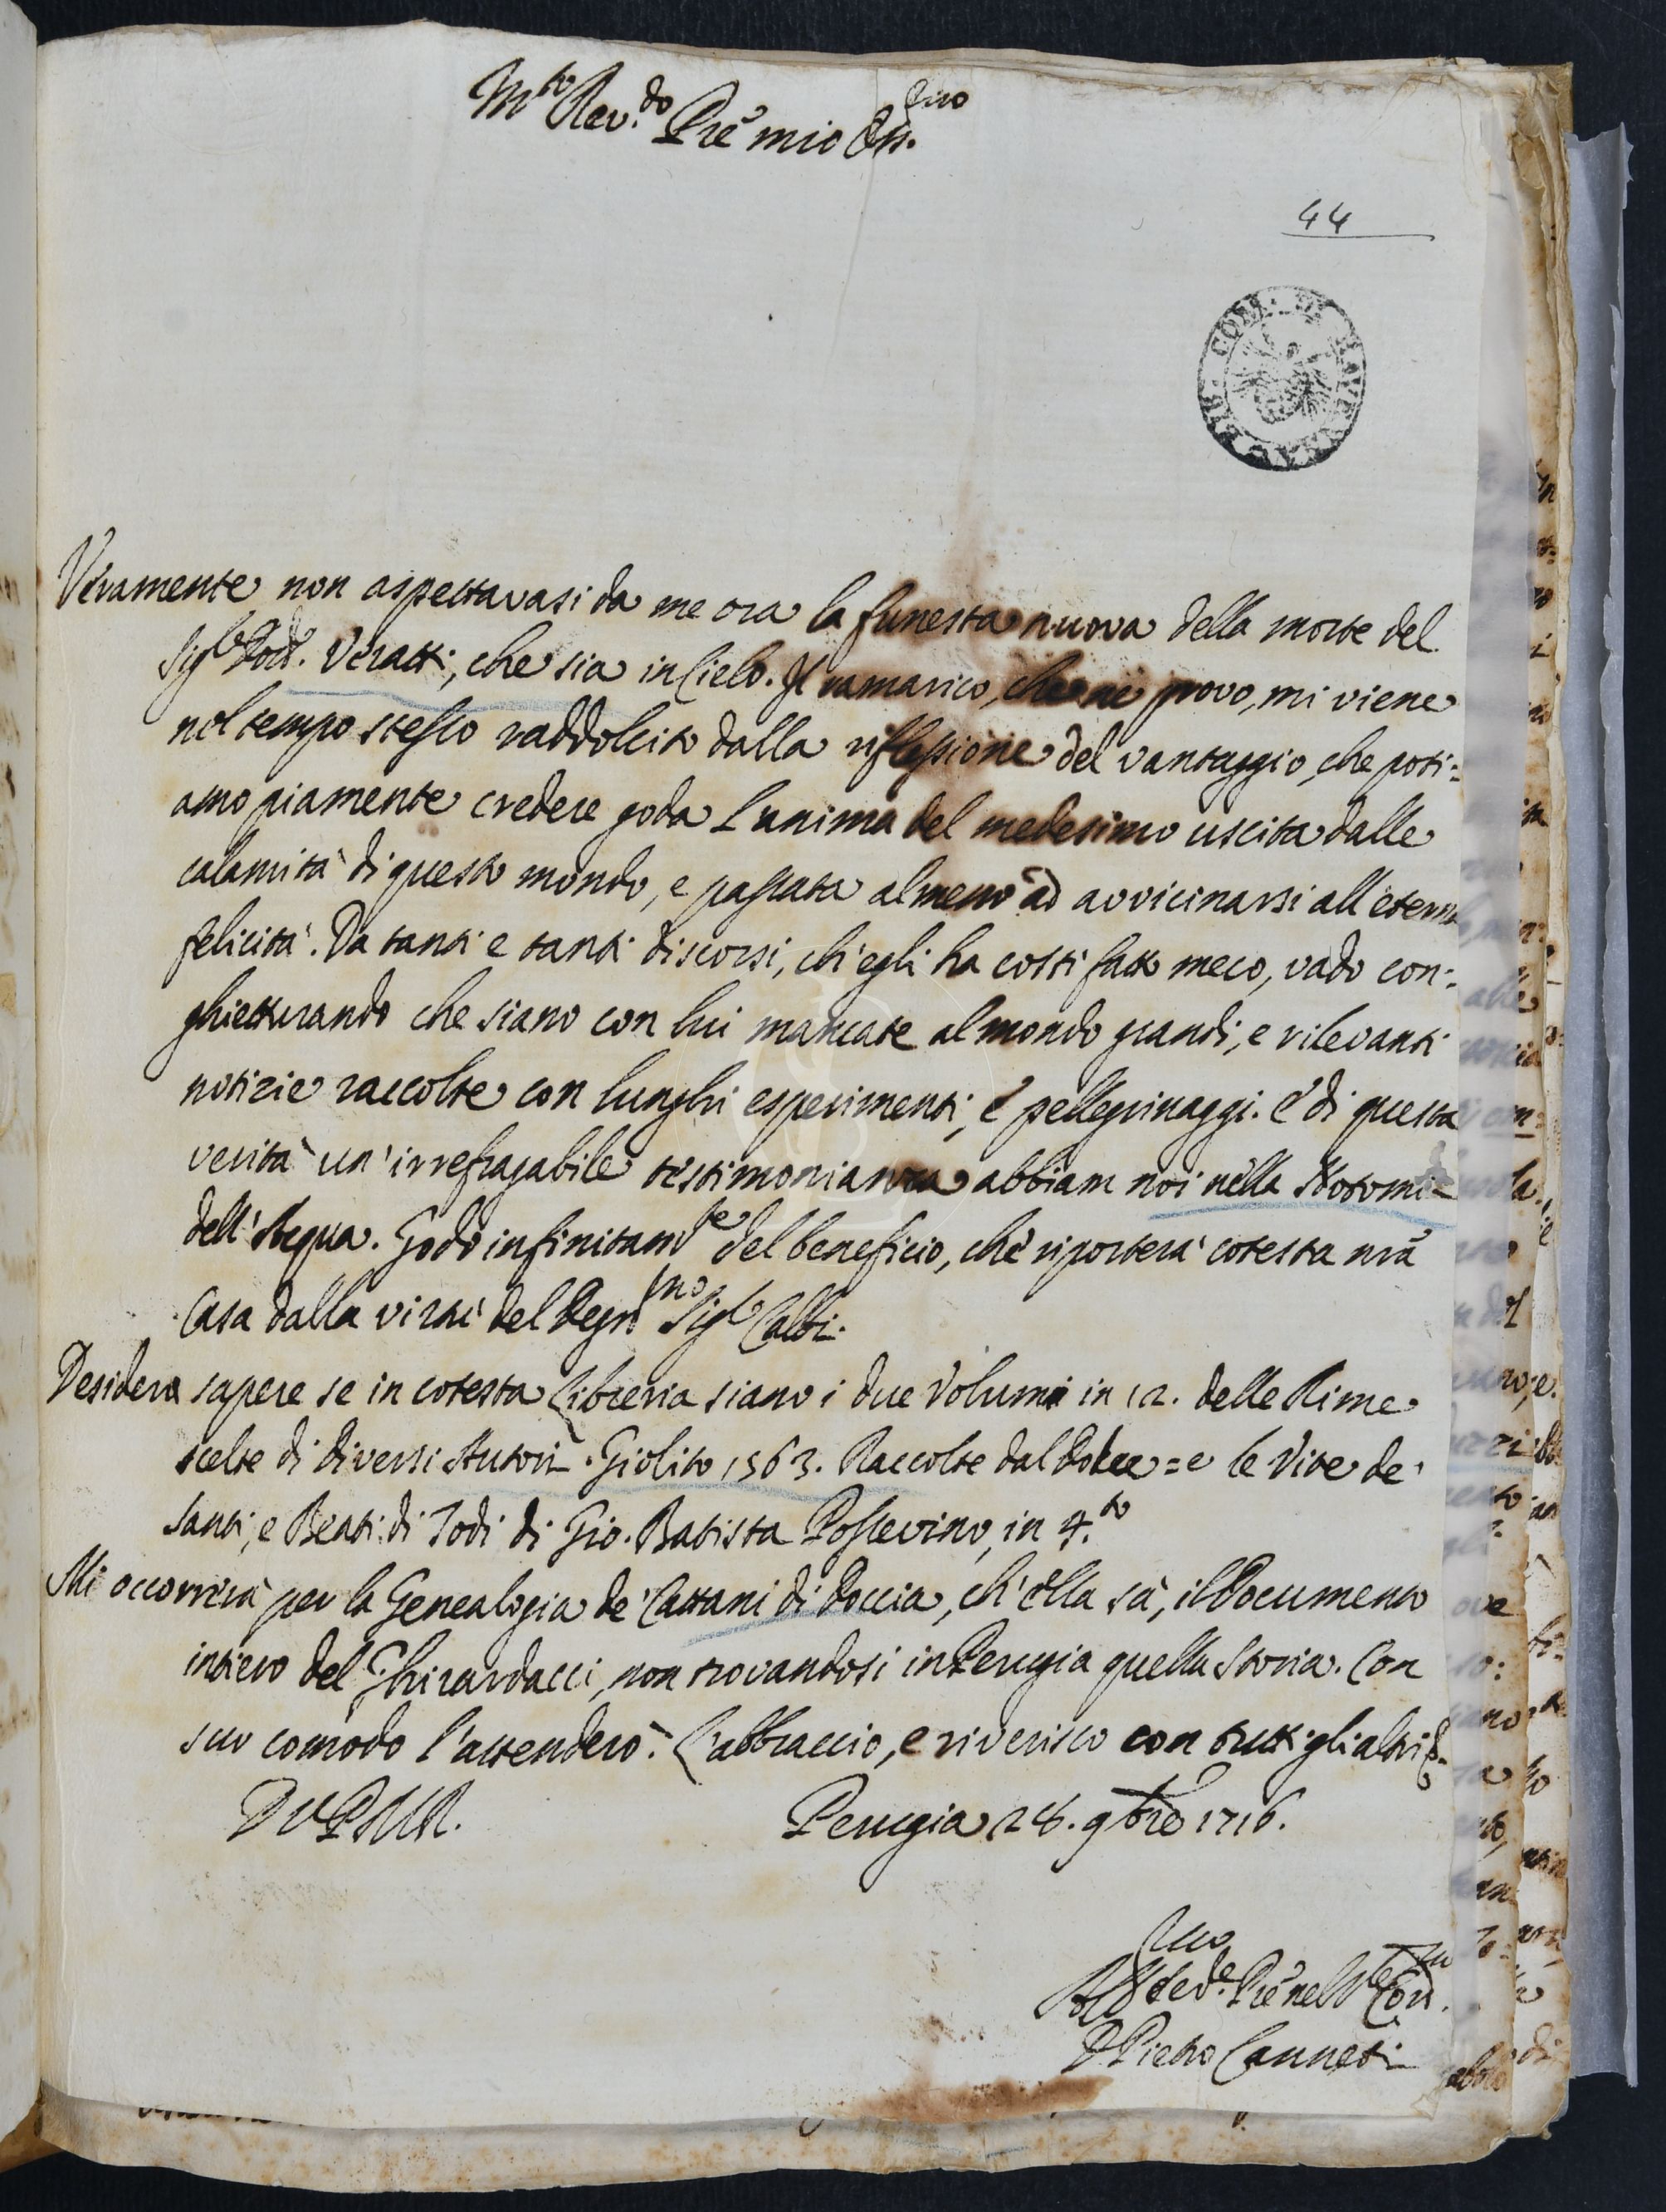 M.to Rev.do Prē mio Oss.mo
44
Veramente non aspettavasi da me ora la funesta nuova della morte del
Sig.r Dott. Veratti, che sia in Cielo. Il ramarico, che ne provo, mi viene
nel tempo stesso raddolcito dalla riflessione del vantaggio, che poti:
amo piamente credere goda l'anima del medesimo uscita dalle
calamità di questo mondo, e passata almeno ad avvicinarsi all'eterna
felicità. Da tanti e tanti discorsi, ch'egli ha costì fatto meco, vado con:
ghietturando che siano con lui mancate al mondo grandi, e rilevanti
notizie raccolte con lunghi esperimenti, e pellegrinaggi. e di questa
verità un'irrefragabile testimonianza abbiam noi nella Notomia
dell'Acqua. Godo infinitam.te del beneficio, che riporterà cotesta nrā
Casa dalla virtù del Degn.mo Sig.r Calbi.
Desidera sapere se in cotesta Libreria siano i due Volumi in 12. delle Rime
scelte di diversi Autori. Giolito 1563. Raccolte dal Dolce = e le Vite de'
Santi, e Beati di Todi di Gio. Batista Possevino, in 4.to
Mi occorrerà per la Genealogia de' Cattani di Doccia, ch'ella sà, il Documento
intiero del Ghirardacci, non trovandosi in Perugia quella Storia. Con
suo comodo l'attenderò. L'abbraccio, e riverisco con tutti gli altri &.
D V P M R.
Perugia 28. 9bre 1716.
D Pietro Canneti